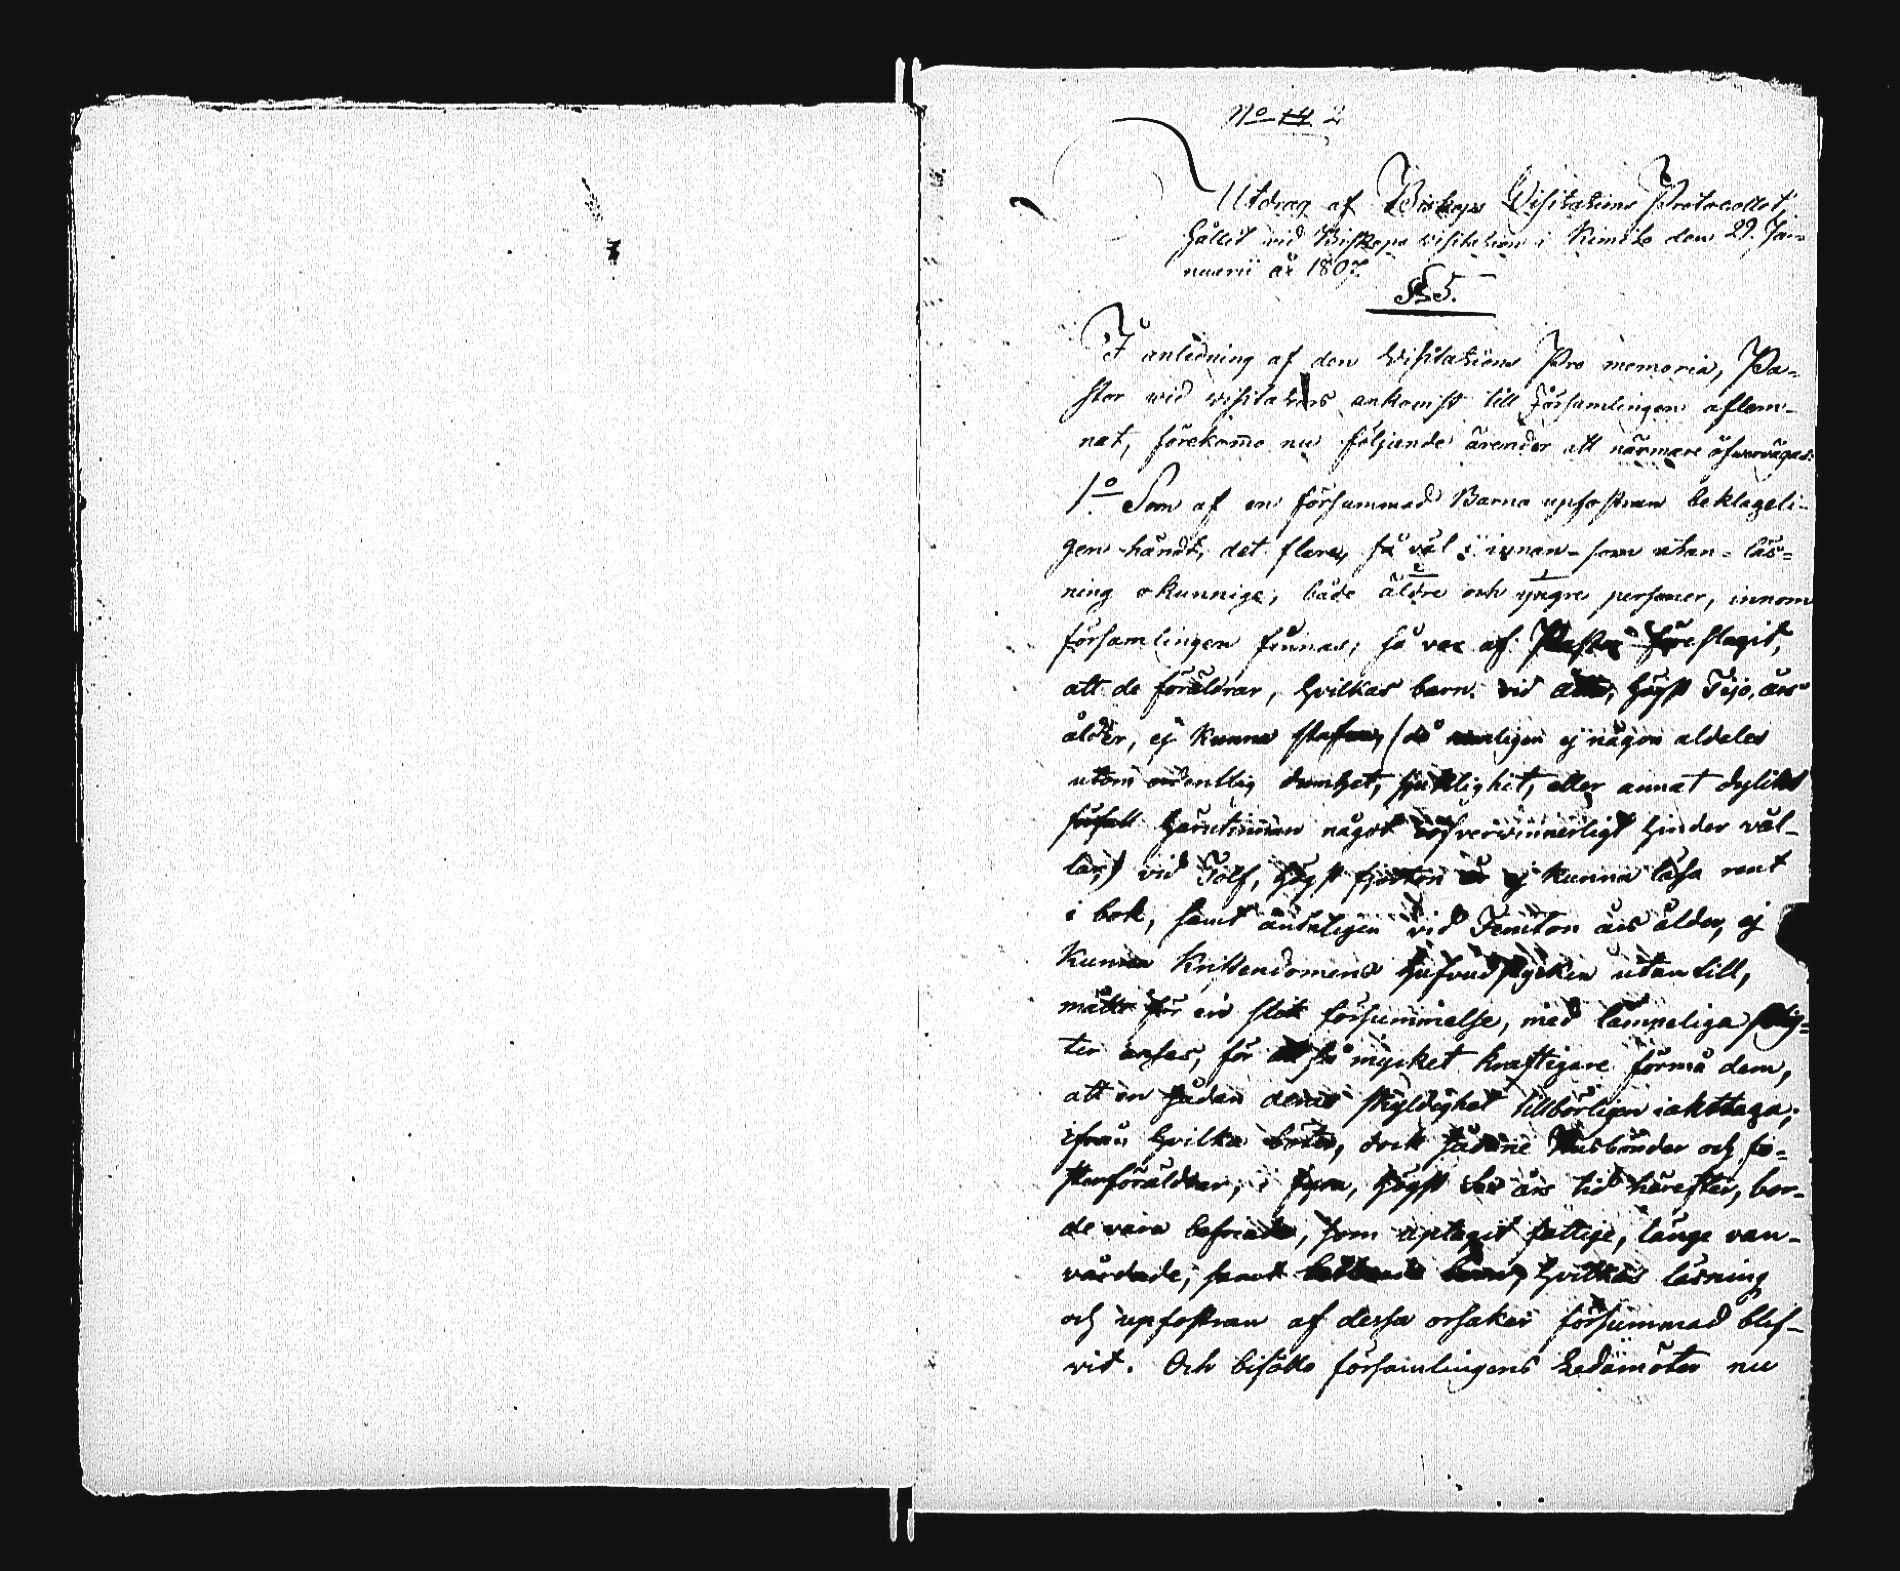 No 14 2
Utdrag af Biskops Visitations Protocollet
hållit vid Biskops visitation i Kimito den 29. Ja-
nuarii år 1807
§ 5.
I anledning af den Visitations Pro memoria, Pa-
stor vid visitators ankomst till Församlingen aflem-
nat, förekommo nu följande ärender att närmare öfvervägas:
1o Som af en försummad Barna upfostran beklageli-
gen händt, det flere, så väl i innan- som utan- läs-
ning okunnige, både äldre och yngre personer, innom
församlingen finnas; så var af Pastor föreslagit,
att de föräldrar, hvilkas barn vid åtta, högst Tijo, års
ålder, ej kunna stafva, (då nemligen ej någon aldeles
utom ordentlig dumhet, sjuklighet, eller annat dylikt
förfall härutinnan något oöfvervinnerligt hinder vål-
lar,) vid Tolf, högst fjorton år ej kunna läsa rent
i bok, samt ändteligen vid Femton års ålder, ej
kunna Kristendomens hufvudstycken utantill,
måtte för en slik försummelse, med lämpeliga plig-
ter ansес, för att så mycket kraftigare förmå dem,
att en sådan deras skyldighet tillbörligen iakttaga;
ifrån hvilka böter, dock sådane Husbönder och fo-
sterföräldrar, i fyra, högst sex års tid härefter, bor-
de vara befriade, som uptagit fattige, länge van-
vårdade, samt barn, hvilkas läsning
och upfostran af dessa orsaker försummad blif-
vit. Och biföllo församlingens Ledamöter nu